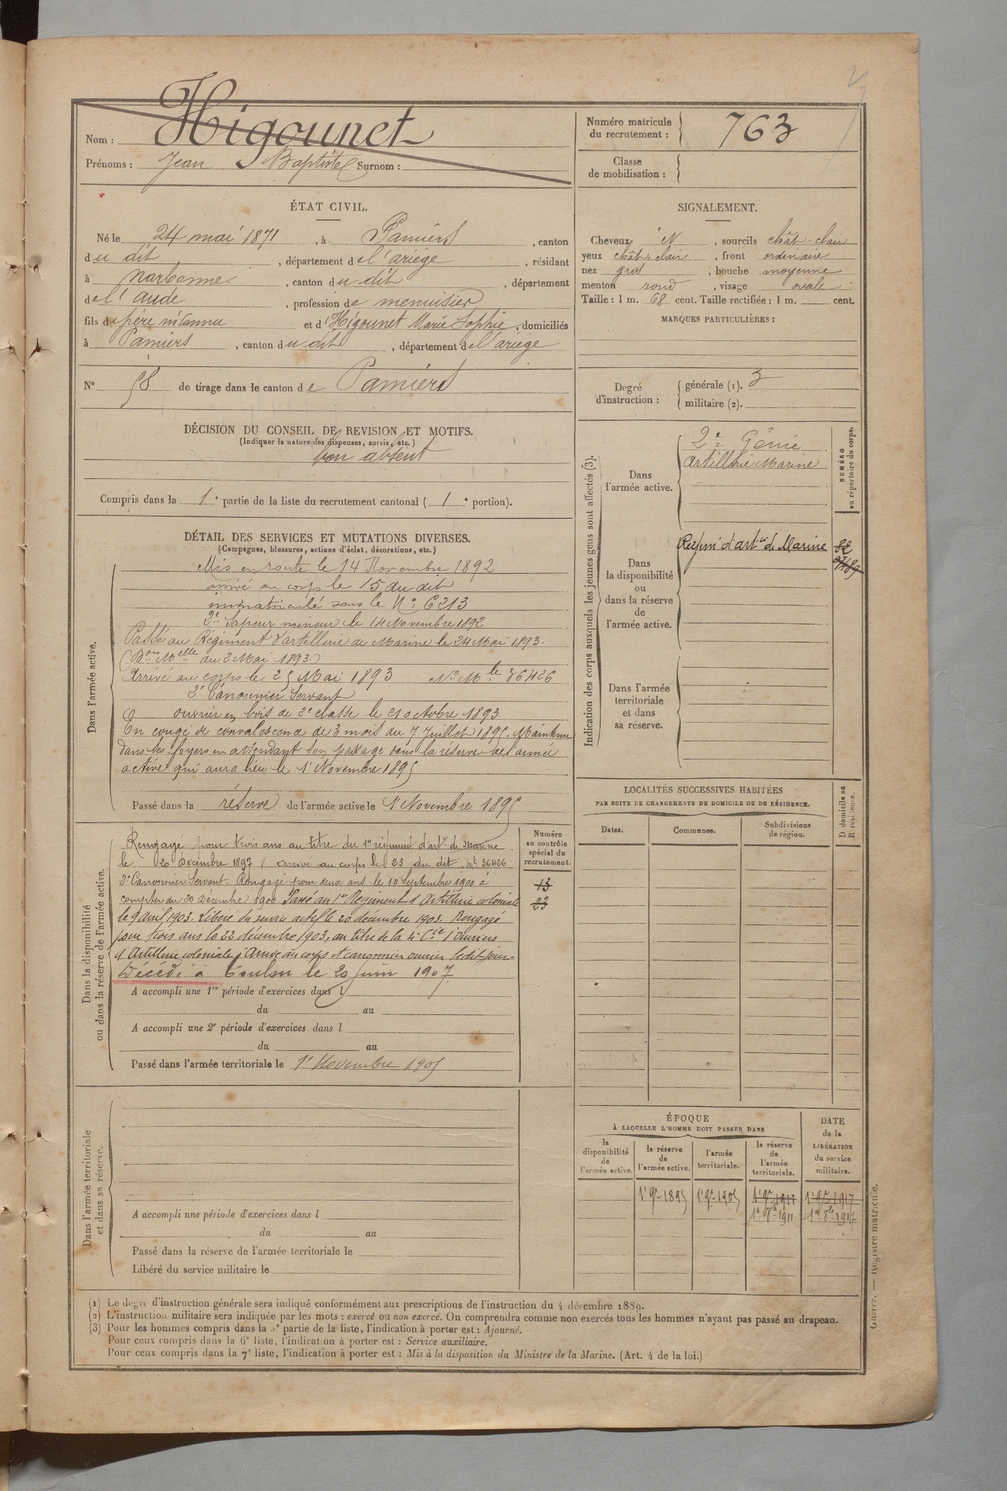 Nom : Higounet
Prénoms : Jean Baptiste Surnom :
Numéro matricule du recrutement : 763
Classe de mobilisation :
ÉTAT CIVIL.
Né le 24 mai 1871, à Pamiers, canton
du dit, département de l'ariège, résidant
à Narbonne, canton du dit, département
de l'aude, profession de menuisier
fils de père inconnu et d' Higounet Marie Sophie, domiciliés
à Pamiers, canton du dit, département de l'ariège
N° 58 de tirage dans le canton de Pamiers
SIGNALEMENT.
Cheveux N, sourcils chât-clair
yeux chât-clair, front ordinaire
nez gros, bouche moyenne
menton rond, visage ovale
Taille : 1 m. 68 cent. Taille rectifiée : 1 m. cent.
MARQUES PARTICULIÈRES :
Degré d'instruction :
générale (1). 3
militaire (2).
DÉCISION DU CONSEIL DE REVISION ET MOTIFS.
(Indiquer la nature des dispenses, sursis, etc.)
bon absent
Compris dans la 1e partie de la liste du recrutement cantonal ( 1e portion).
DÉTAIL DES SERVICES ET MUTATIONS DIVERSES.
(Campagnes, blessures, actions d'éclat, décorations, etc.)
Dans l'armée active.
Mis en route le 14 Novembre 1892
arrivé au corps le 15 du dit
immatriculé sous le N° 6213
2e Sapeur mineur le 14 Novembre 1892
Passé au Régiment d'artillerie de Marine le 24 Mai 1893.
(Don Melle du 2 Mai 1893.)
Arrivé au corps le 25 Mai 1893 No Mle 36426
2e Canonnier Servant
ouvrier en bois de 2e classe le 21 octobre 1893
En congé de convalescence de 3 mois du 7 Juillet 1895. Maintenu
dans ses foyers en attendant son passage dans la réserve de l'armée
active qui aura lieu le 1r Novembre 1895
Passé dans la réserve de l'armée active le 1r Novembre 1895
Dans la disponibilité ou dans la réserve de l'armée active.
Rengagé pour trois ans au titre du 1er régiment d'artie de marine
le 20 Décembre 1897, arrivé au corps le 23 du dit, nl 36426
2e Cannonier Servant. Rengagé pour deux ans le 10 Septembre 1900 à
compter du 20 décembre 1900 Passé au 1er Régiment d'Artillerie coloniale
le 9 avril 1903. Libéré du service actif le 20 décembre 1903. Rengagé
pour trois ans le 22 décembre 1903, au titre de la 4e Cie d'Ouvriers
d'Artillerie coloniale, Arrivé au corps et canonnier ouvrier ledit jour.
Décédé à Toulon le 20 juin 1907.
Numéro au contrôle spécial du recrutement.
13
23
A accompli une 1re période d'exercices dans l
du au
A accompli une 2e période d'exercices dans l
du au
Passé dans l'armée territoriale le 1r Novembre 1905
Dans l'armée territoriale et dans sa réserve.
A accompli une période d'exercices dans l
du au
Passé dans la réserve de l'armée territoriale le
Libéré du service militaire le
Indication des corps auxquels les jeunes gens sont affectés (3).
NUMÉRO au répertoire du corps.
Dans l'armée active.
2e Génie
Artillerie Marine
Dans la disponibilité ou dans la réserve de l'armée active.
d'artie de Marine
Dans l'armée territoriale et dans sa réserve.
LOCALITÉS SUCCESSIVES HABITÉES
PAR SUITE DE CHANGEMENTS DE DOMICILE OU DE RÉSIDENCE.
Dates.
Communes.
Subdivisions de région.
D domicile ou R résidence.
ÉPOQUE
À LAQUELLE L'HOMME DOIT PASSER DANS
la disponibilité de l'armée active.
la réserve de l'armée active.
l'armée territoriale.
la réserve de l'armée territoriale.
DATE de la LIBÉRATION du service militaire.
1r 9bre 1895
1r 9bre 1905
1r 9bre 1911
1r 9bre 1917
(1) Le degré d'instruction générale sera indiqué conformément aux prescriptions de l'instruction du 4 décembre 1889.
(2) L'instruction militaire sera indiquée par les mots : exercé ou non exercé. On comprendra comme non exercés tous les hommes n'ayant pas passé au drapeau.
(3) Pour les hommes compris dans la partie de la liste, l'indication à porter est : Ajourné.
Pour ceux compris dans la 6e liste, l'indication à porter est : Service auxiliaire.
Pour ceux compris dans la 7e liste, l'indication à porter est : Mis à la disposition du Ministre de la Marine. (Art. 4 de la loi.)
Guerre. — Registre matricule.